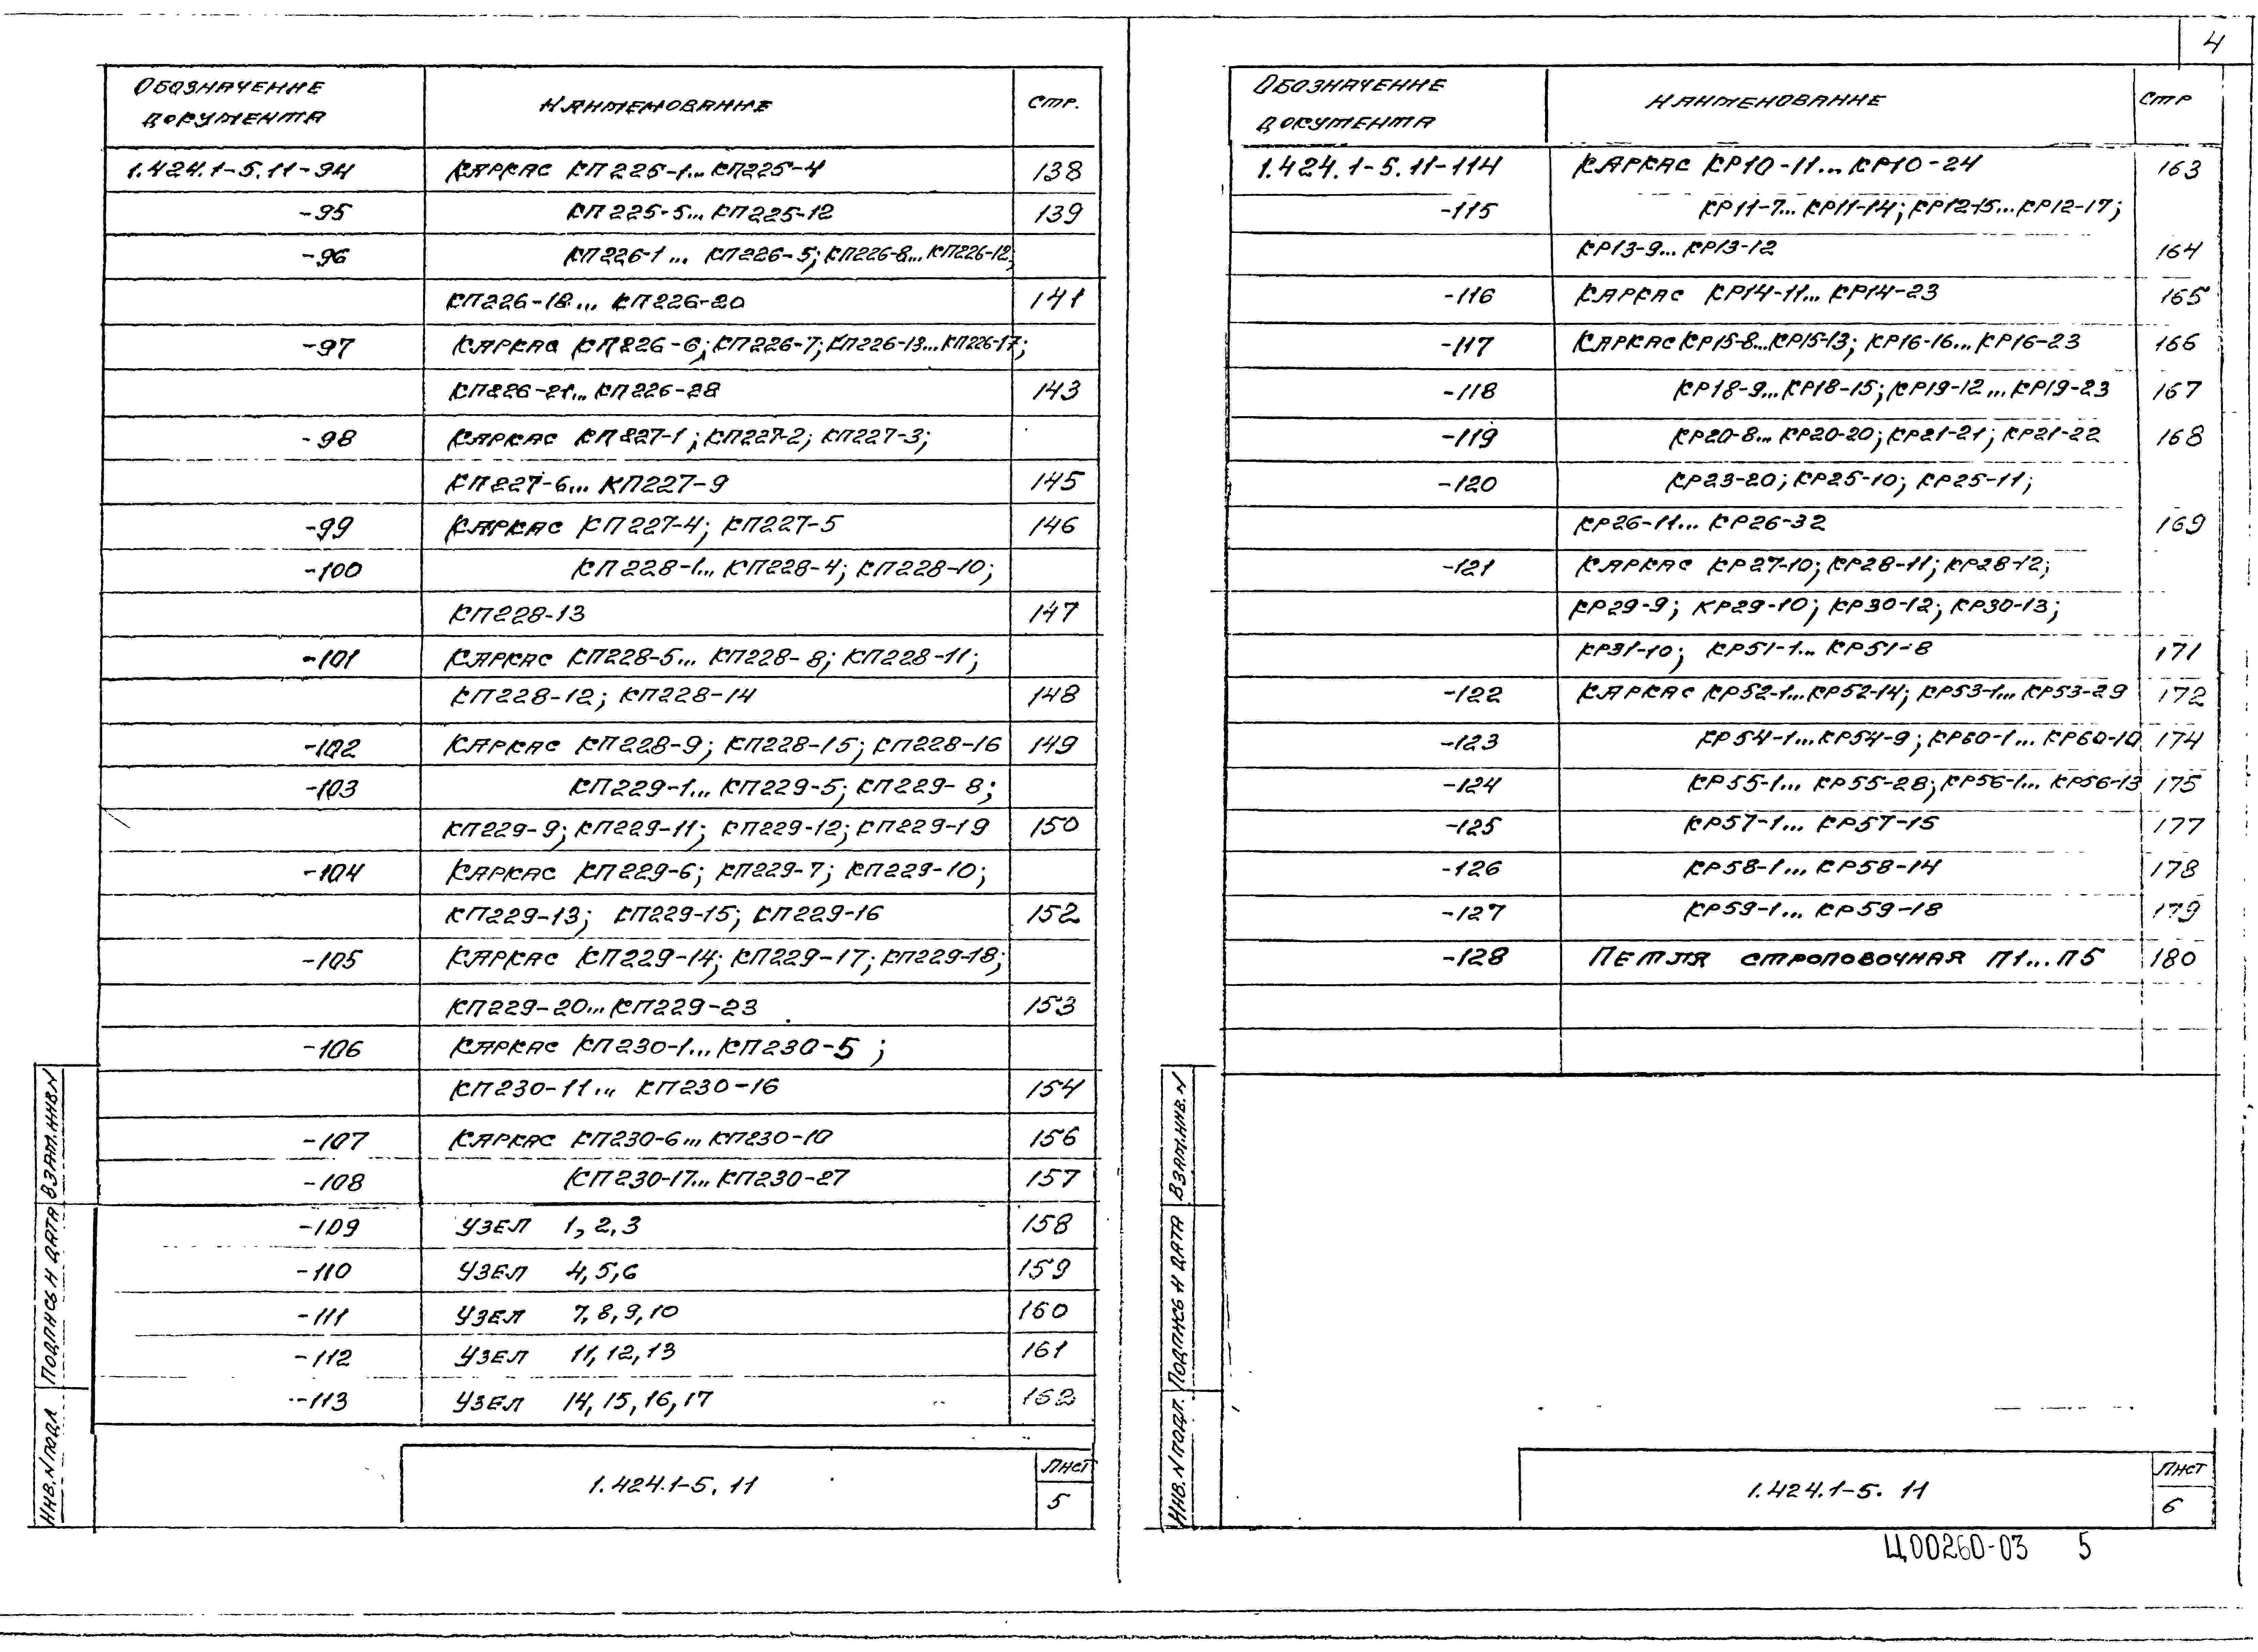 4
Обозначение документа Наименование Стр.
1.424.1-5.11-94 Каркас КП225-1... КП225-4 138
-95 КП225-5... КП225-12 139
-96 КП226-1... КП226-5; КП226-8... КП226-12;
КП226-18... КП226-20 141
-97 Каркас КП226-6; КП226-7; КП226-13... КП226-17;
КП226-21... КП226-28 143
-98 Каркас КП227-1; КП227-2; КП227-3;
КП227-6... КП227-9 145
-99 Каркас КП227-4; КП227-5 146
-100 КП228-1... КП228-4; КП228-10;
КП228-13 147
-101 Каркас КП228-5... КП228-8; КП228-11;
КП228-12; КП228-14 148
-102 Каркас КП228-9; КП228-15; КП228-16 149
-103 КП229-1... КП229-5; КП229-8;
КП229-9; КП229-11; КП229-12; КП229-19 150
-104 Каркас КП229-6; КП229-7; КП229-10;
КП229-13; КП229-15; КП229-16 152
-105 Каркас КП229-14; КП229-17; КП229-18;
КП229-20... КП229-23 153
-106 Каркас КП230-1... КП230-5 ;
КП230-11... КП230-16 154
-107 Каркас КП230-6... КП230-10 156
-108 КП230-17... КП230-27 157
-109 Узел 1, 2, 3 158
-110 Узел 4, 5, 6 159
-111 Узел 7, 8, 9, 10 160
-112 Узел 11, 12, 13 161
-113 Узел 14, 15, 16, 17 162
Инв.N подл Подпись и дата Взам.инв.N
1.424.1-5. 11
Лист
5
Обозначение документа Наименование Стр
1.424.1-5.11-114 Каркас КР10-11... КР10-24 163
-115 КР11-7... КР11-14; КР12-15... КР12-17;
КР13-9... КР13-12 164
-116 Каркас КР14-11... КР14-23 165
-117 Каркас КР15-8... КР15-13; КР16-16... КР16-23 166
-118 КР18-9... КР18-15; КР19-12... КР19-23 167
-119 КР20-8... КР20-20; КР21-21; КР21-22 168
-120 КР23-20; КР25-10; КР25-11;
КР26-11... КР26-32 169
-121 Каркас КР27-10; КР28-11; КР28-12;
КР29-9; КР29-10; КР30-12; КР30-13;
КР31-10; КР51-1... КР51-8 171
-122 Каркас КР52-1... КР52-14; КР53-1... КР53-29 172
-123 КР54-1... КР54-9; КР60-1... КР60-10 174
-124 КР55-1... КР55-28; КР56-1... КР56-13 175
-125 КР57-1... КР57-15 177
-126 КР58-1... КР58-14 178
-127 КР59-1... КР59-18 179
-128 Петля строповочная П1...П5 180
Инв.N подл. Подпись и дата Взам.инв.N
1.424.1-5. 11
Лист
6
Ц00260-03 5